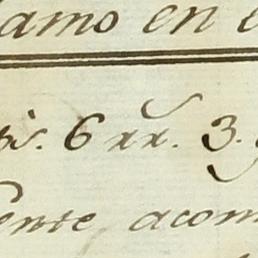 amo en e
is. 6 rr. 3.
ente acom